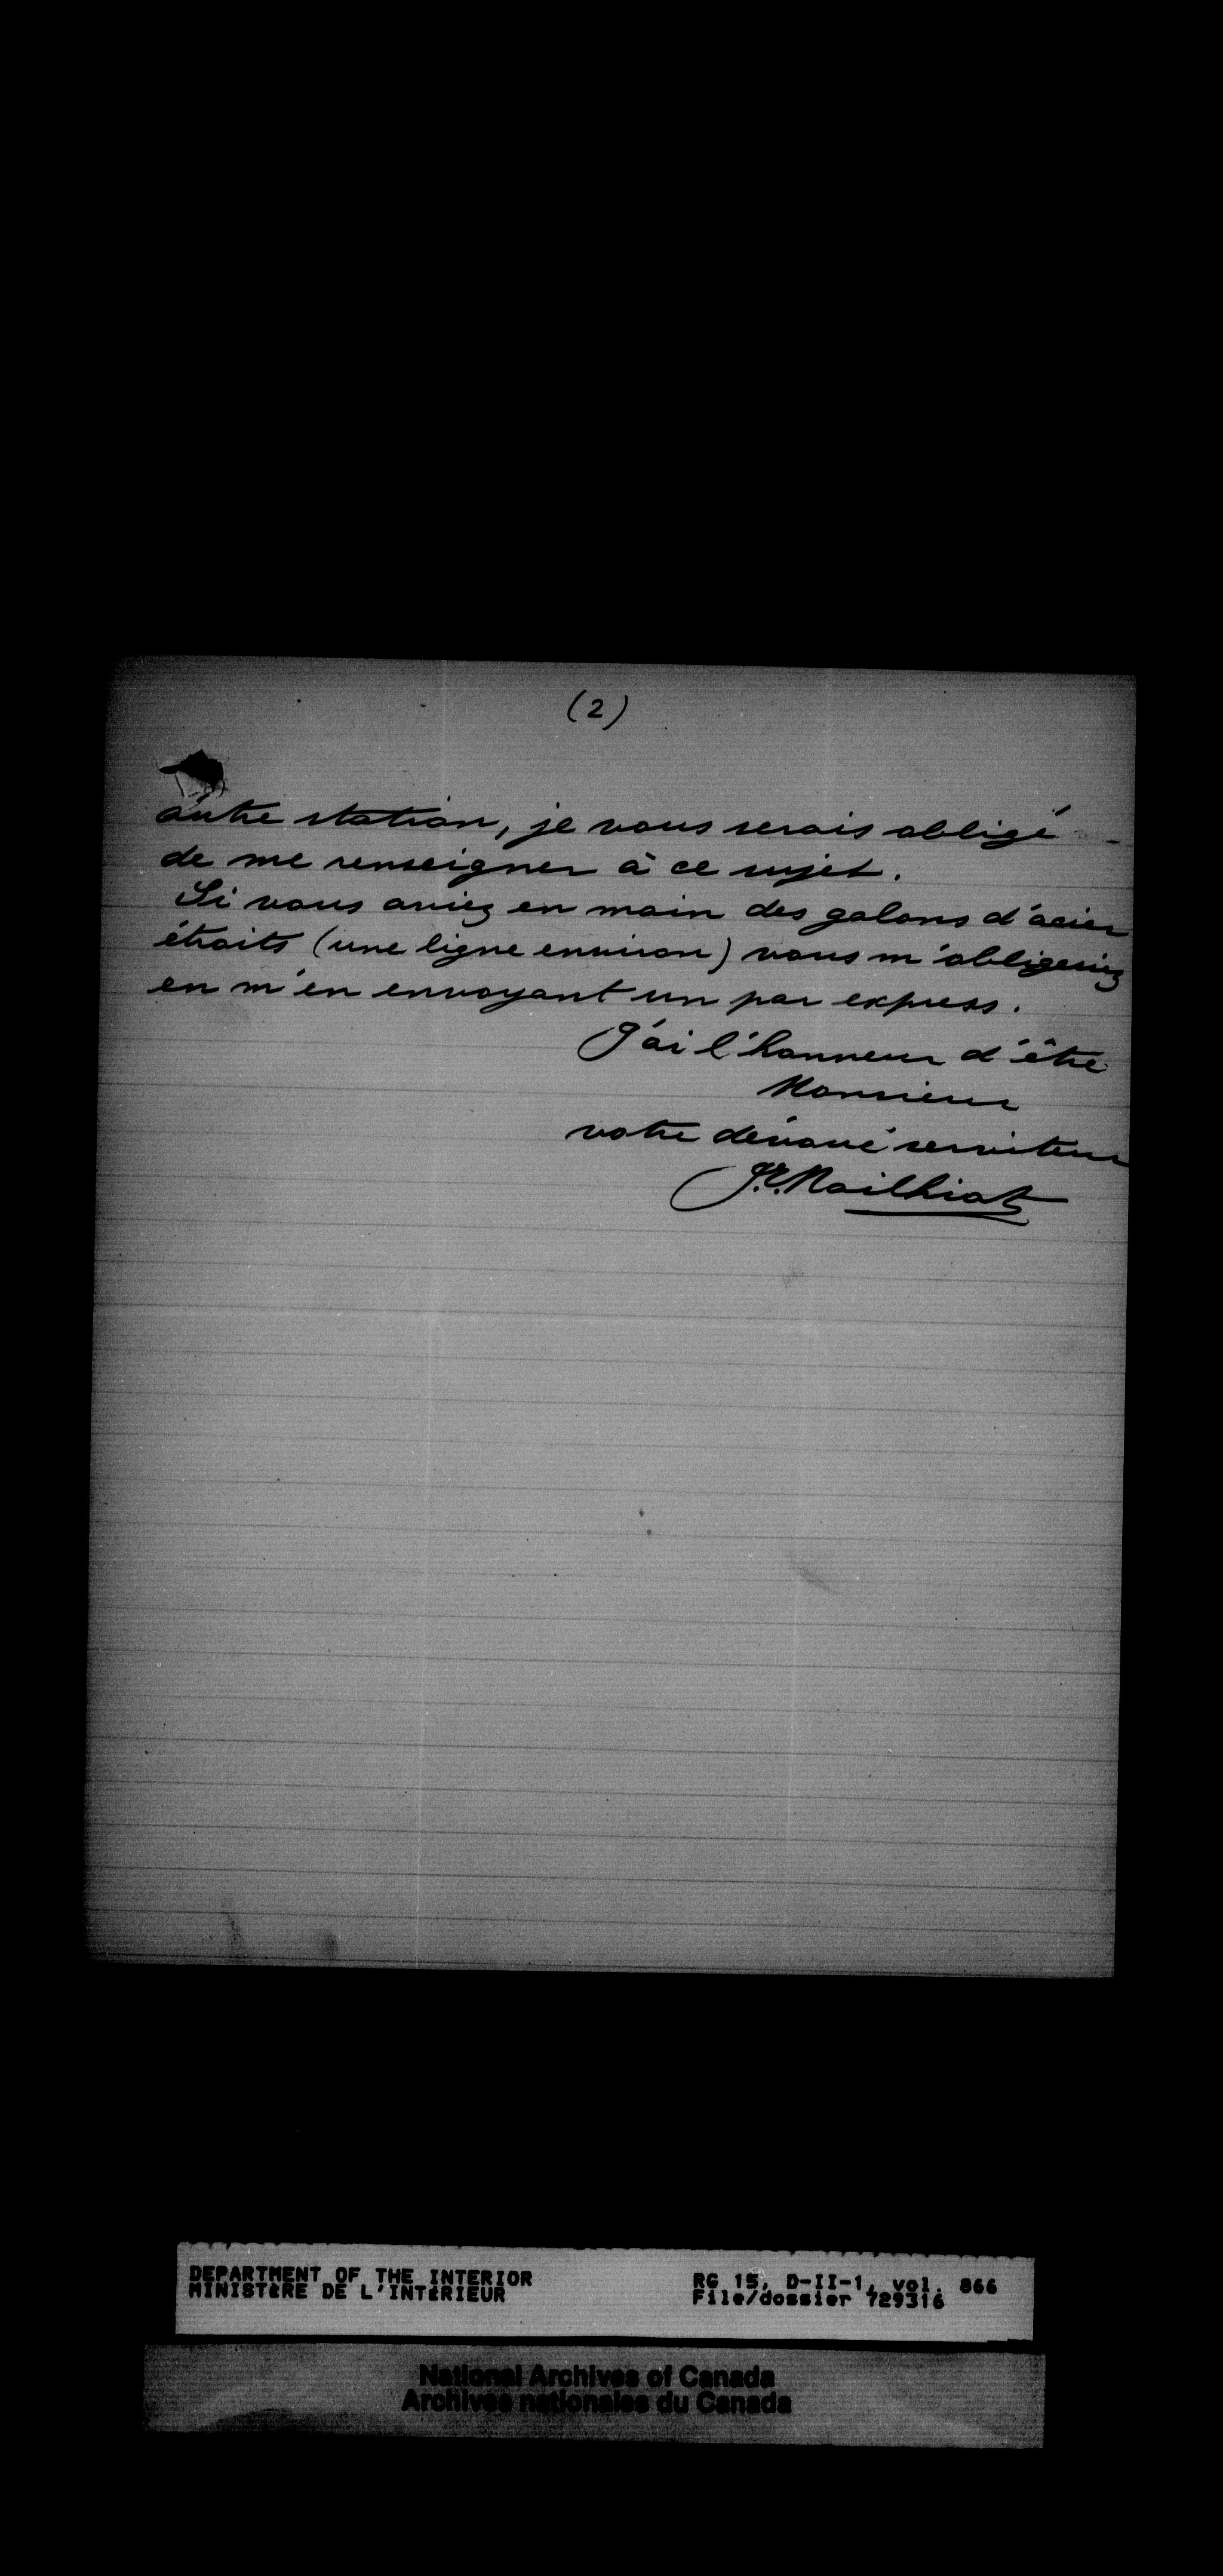 (2)
autre station, je vous serais obligé
de me renseigner à ce sujet.
Si vous aviez en main des galons d'acier
étroits (une ligne environ) vous m'obligeriez
en m'en envoyant un par express.
J'ai l'honneur d'être
Monsieur
votre dévoué serviteur
J.E. Mailhiot
DEPARTMENT OF THE INTERIOR
MINISTÈRE DE L'INTÉRIEUR
RG 15, D-II-1, vol. 866
File/dossier 729316
National Archives of Canada
Archives nationales du Canada